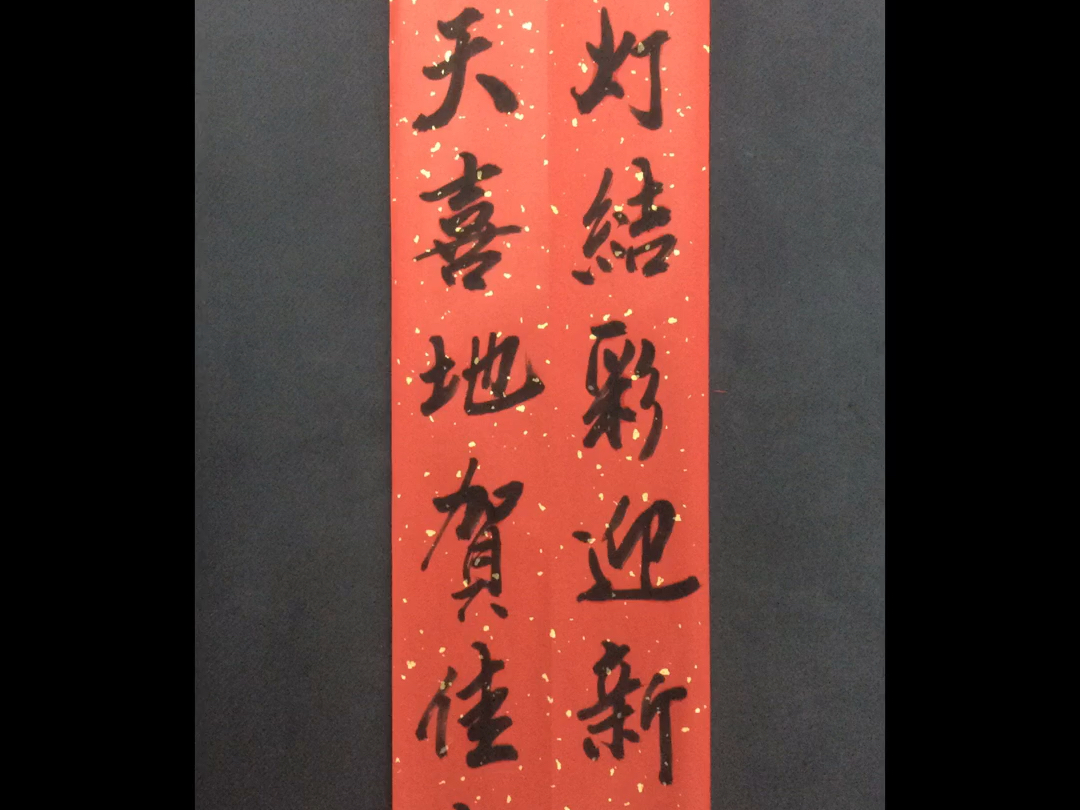 灯結彩迎新
天喜地賀佳